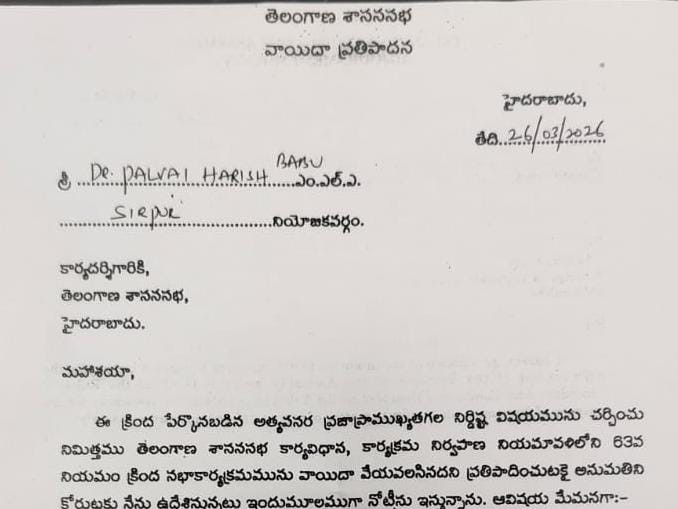 తెలంగాణ శాసనసభ
వాయిదా ప్రతిపాదన
హైదరాబాదు,
తేది..26/03/2026
శ్రీ ...Dr. PALVAI HARISH BABU...ఎం.ఎల్.ఏ.
...SIRPUR...నియోజకవర్గం.
కార్యదర్శిగారికి,
తెలంగాణ శాసనసభ,
హైదరాబాదు.
మహాశయా,
ఈ క్రింద పేర్కొనబడిన అత్యవసర ప్రజాప్రాముఖ్యతగల నిర్దిష్ట విషయమును చర్చించు
నిమిత్తము తెలంగాణ శాసనసభ కార్యవిధాన, కార్యక్రమ నిర్వహణ నియమావళిలోని 63వ
నియమం క్రింద సభాకార్యక్రమమును వాయిదా వేయవలసినదని ప్రతిపాదించుటకై అనుమతిని
కోరుటకు నేను ఉద్దేశినున్నట్లు ఇందుమూలముగా నోటీసు ఇస్తున్నాను. ఆవిషయ మేమనగా:-